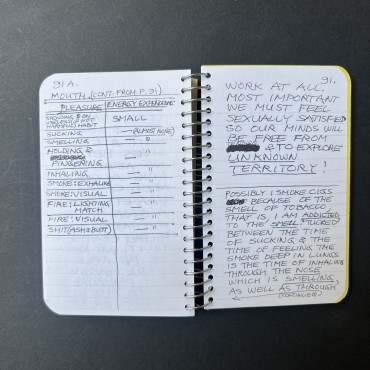 91A.
MOUTH, (CONT. FROM P. 91)
PLEASURE ENERGY EXPENDITURE
SPENDING $ ON
HARMFUL HABIT SMALL
SUCKING — (ALMOST NONE)
SMELLING — "
HOLDING &
FINGERING — "
INHALING — "
SMOKE: EXHALING — "
SMOKE: VISUAL — "
FIRE: LIGHTING
MATCH — "
FIRE: VISUAL — "
SHIT (ASH & BUTT) — "
91.
WORK AT ALL.
MOST IMPORTANT
WE MUST FEEL
SEXUALLY SATISFIED
SO OUR MINDS WILL
BE FREE FROM
& TO EXPLORE
UNKNOWN
TERRITORY!
POSSIBLY I SMOKE CIGS
BECAUSE OF THE
SMELL OF TOBACCO.
THAT IS, I AM ADDICTED
TO THE SMELL TICKLED
BETWEEN THE TIME
OF SUCKING & THE
TIME OF FEELING THE
SMOKE DEEP IN LUNGS
IS THE TIME OF INHALING
THROUGH THE NOSE
WHICH IS SMELLING,
AS WELL AS THROUGH
(CONTINUED)